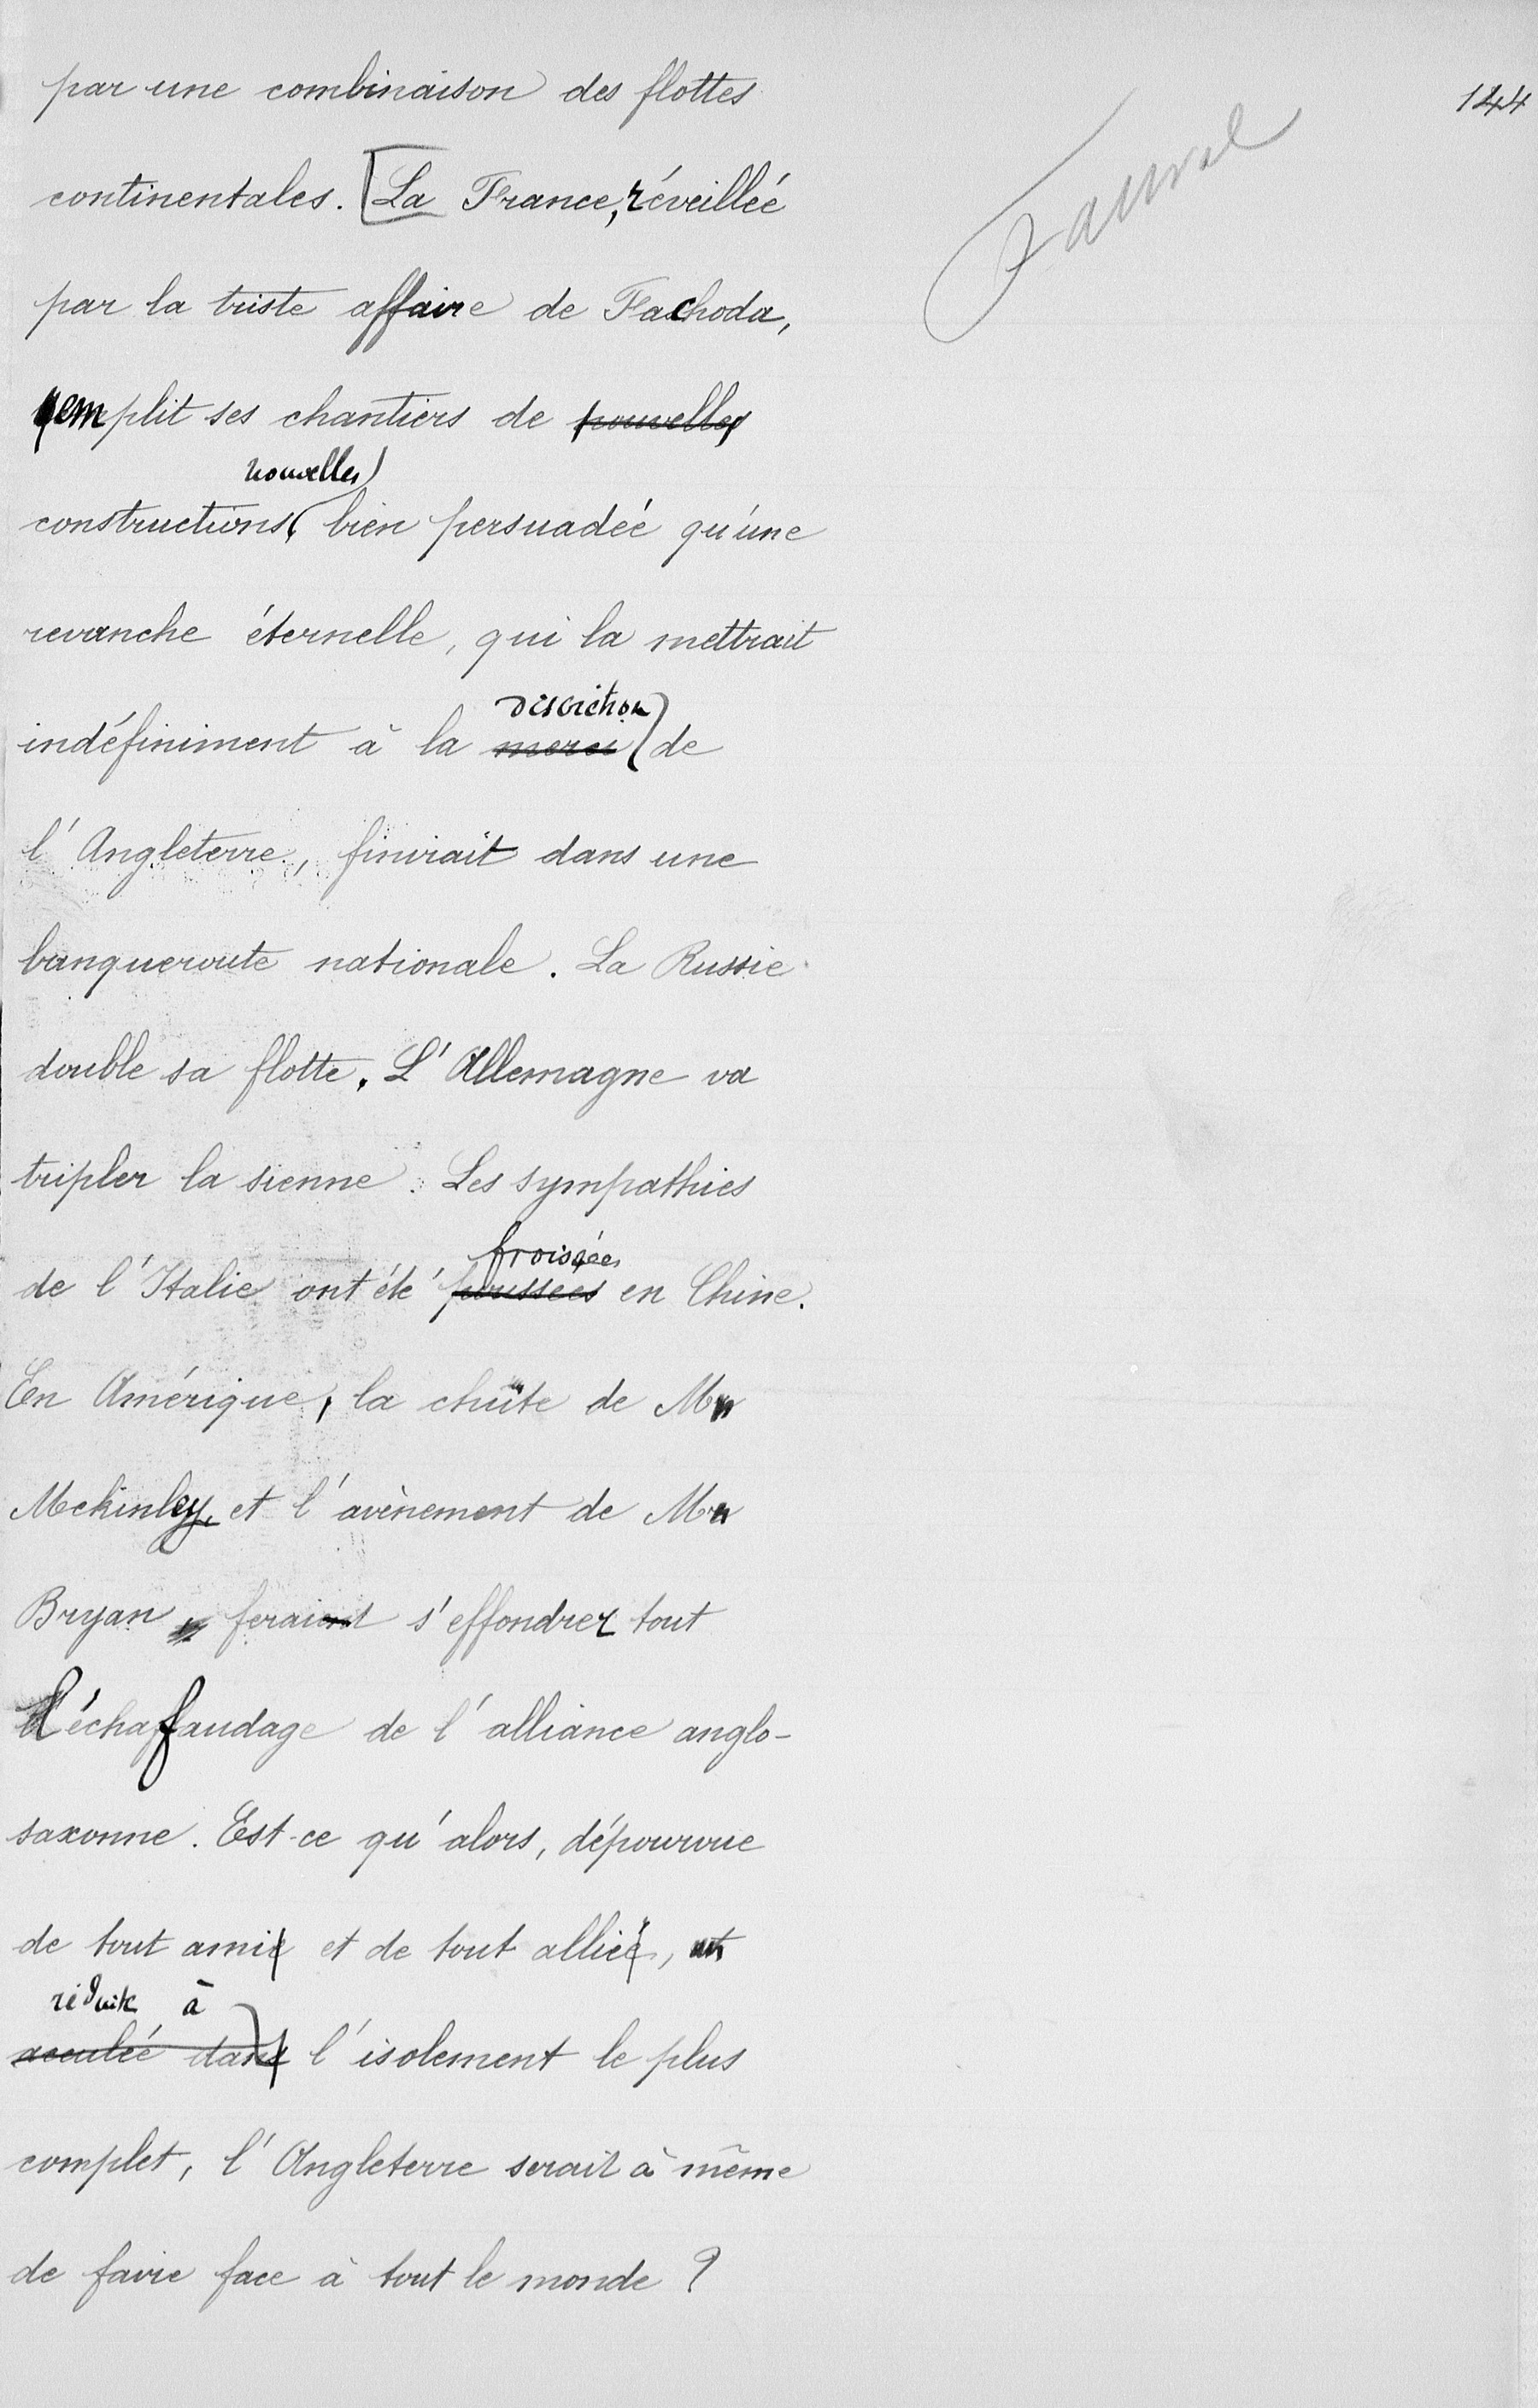 144
par une combinaison des flottes
continentales. [La France, réveillée
par la triste affaire de Fachoda,
emplit ses chantiers de nouvelles
nouvelles
constructions, bien persuadée qu'une
revanche éternelle, qui la mettrait
discrétion
indéfiniment à la merci de
l'Angleterre, finirait dans une
banqueroute nationale. La Russie
double sa flotte. L'Allemagne va
tripler la sienne. Les sympathies
froissées
de l'Italie ont été en Chine.
En Amérique, la chûte de Mr
Mckinley, et l'avènement de Mr
Bryan feraient s'effondrer tout
l'échaffaudage de l'alliance anglo-
saxonne. Est-ce qu'alors, dépourvue
de tout ami et de tout allié,
réduite à
acculée dans l'isolement le plus
complet, l'Angleterre serait à même
de faire face à tout le monde ?